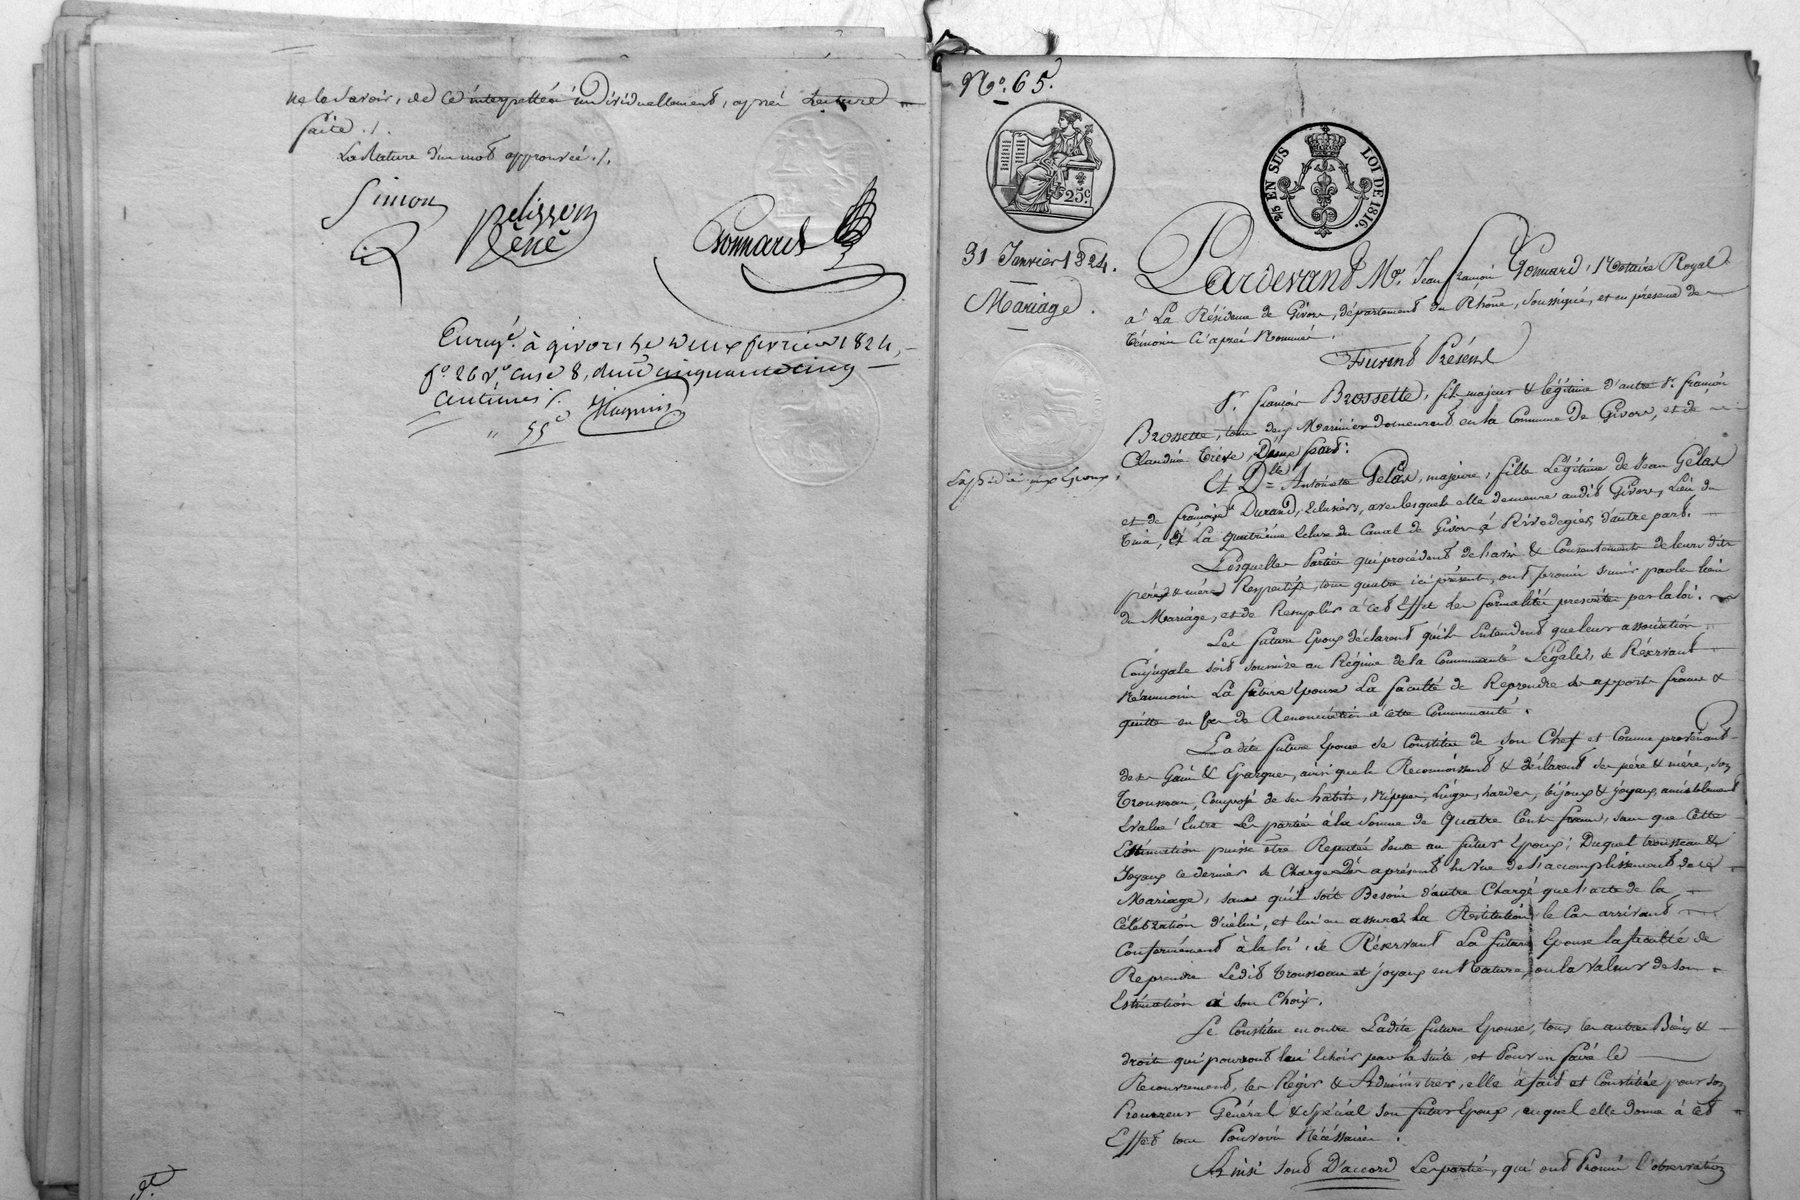 ne le savoir, de ce interpellés individuellement, après Lecture
faite ./.
La Rature d'un mot approuvée ./.
Simon
pelisson
Réné
Gonnard
Enreg.é à givors, le deux fevrier 1824,
f.o 26 v.o case 8, deux cinquante cinq
Centimes /.
55 c
N.o 65.
25c
2/5 EN SUS LOI DE 1816.
31 Janvier 1824.
Mariage.
Expédiée aux Epoux.
Pardevant M.e Jean françois Gonnard, Notaire Royal
à La Résidence de Givors, département du Rhône, soussigné, et en présence des
témoins ci après Nommés,
Furent Présens
S.r françois Brossette, fils majeur & légitime d'autre S.r françois
Brossette, tous deux Mariniers demeurant en la Commune de Givors, et de
Claudine Trève, D'une part;
Et D.lle Antoinette Gelas, majeure, fille Légitime de Jean Gelas
et de françoise Durand, éclusiers, avec lesquels elle demeure audit Givors, Lieu du
à La quatrième écluse du Canal de Givors à Rivedegier, d'autre part.
Lesquelles Parties qui procèdent de l'avis & Consentement de leurs dits
pères & mères Respectifs, tous quatre ici présents, ont promis s'unir par le lien
du Mariage, et de Remplir à cet Effet les formalités prescrites par la loi.
Les futurs Epoux déclarent qu'ils Entendent que leur association
Conjugale soit soumise au Régime de la Communauté Légale, se Réservant
Néanmoins La future Epouse La faculté de Reprendre ses apports francs &
quittes en cas de Renonciation à cette Communauté.
Ladite future Epouse se Constitue de son Chef et Comme provenant
de ses Gains & Epargnes, ainsi que le Reconnoissent & déclarent ses père & mère, son
Trousseau, Composé de ses habits, Nippes, Linges, hardes, bijoux & joyaux, amiablement
Evalué Entre les parties à la somme de Quatre Cents francs, sans que Cette
Estimation puisse être Reputée Vente au futur Epoux; Duquel trousseau &
Joyaux ce dernier se Charge Dès à présent en vue de l'accomplissement de ce
Mariage, sans qu'il soit Besoin d'autre Charge que l'acte de la
Célébration d'icelui, et lui en assure La Restitution le Cas arrivant
Conformément à la loi, se Réservant La future Epouse la faculté de
Reprendre Ledit trousseau et joyaux en Nature, ou la Valeur de son
Estimation à son Choix.
Se Constitue en outre Ladite future Epouse, tous les autres Biens &
droits qui pourront lui Echoir par la suite, et Pour en faire le
Recouvrement, les Régir & Administrer, elle a fait et Constitué pour son
Procureur Général & Spécial son futur Epoux, auquel elle donne à cet
Effet tous Pouvoirs Nécessaires.
Ainsi sont D'accord Les parties, qui ont Promis l'observation